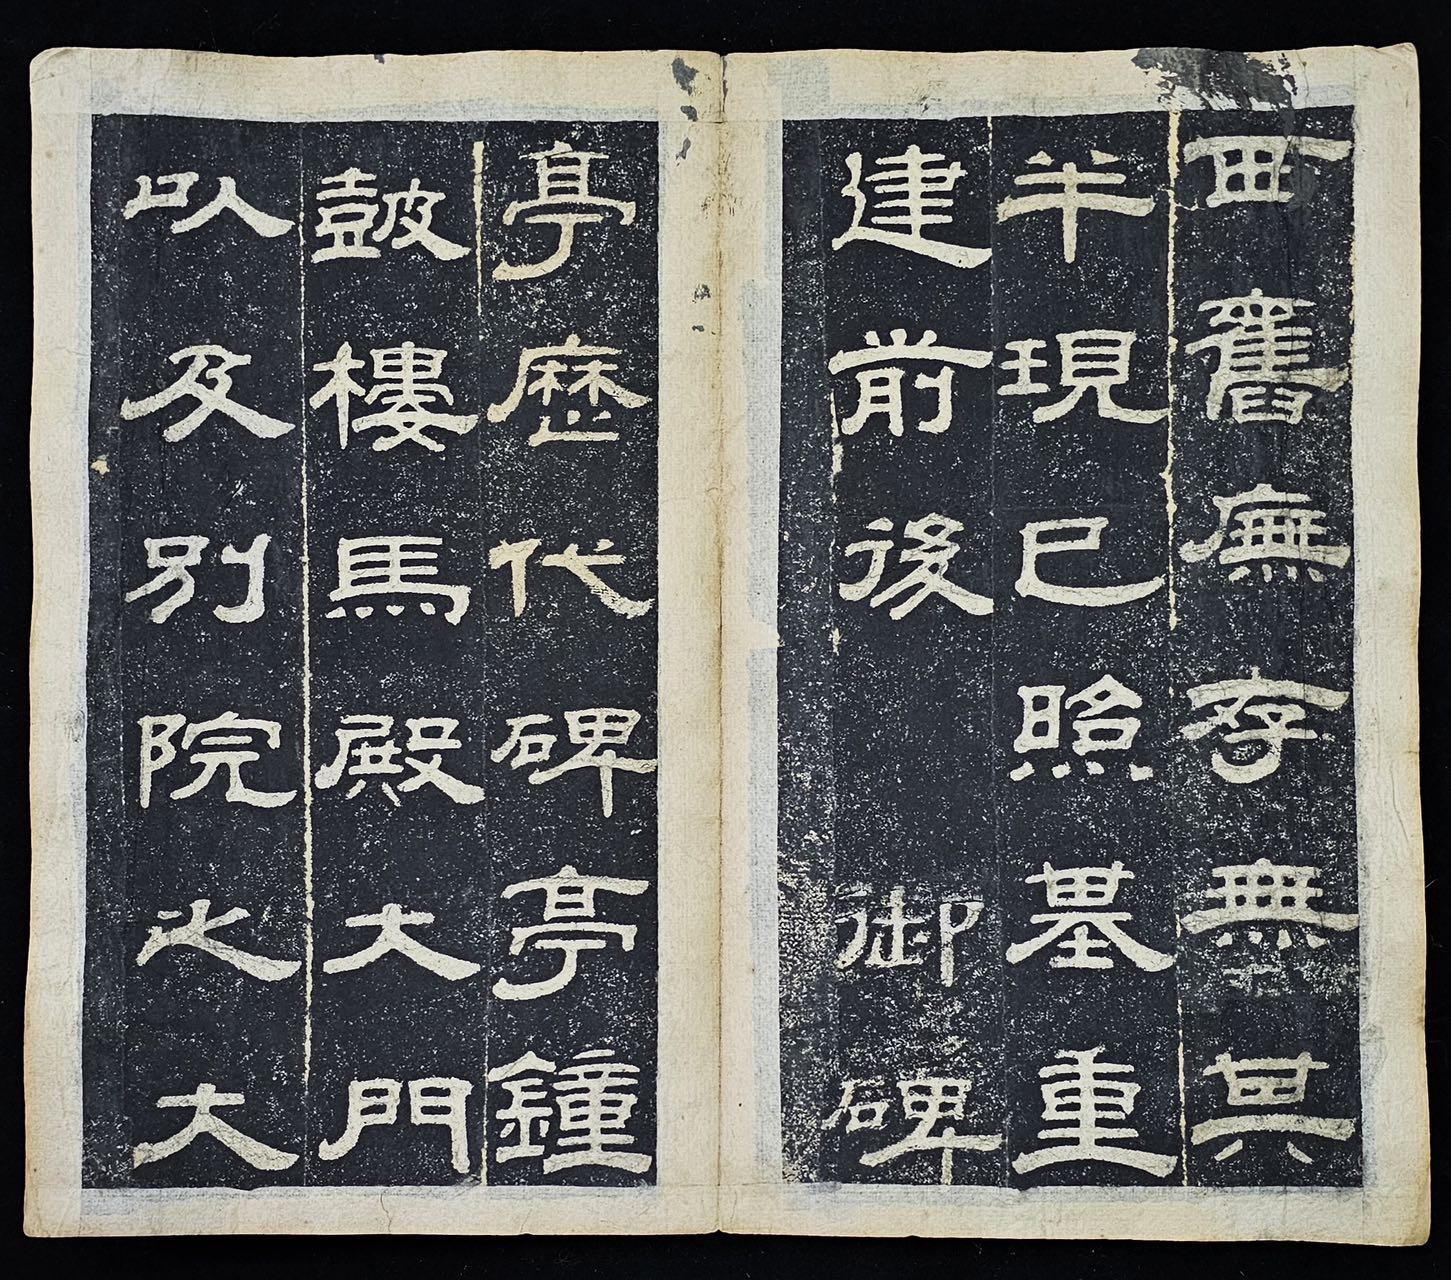 西舊廡存無其
半現已照基重
建前後　御碑
亭歷代碑亭鐘
鼓樓馬殿大門
以及別院之大